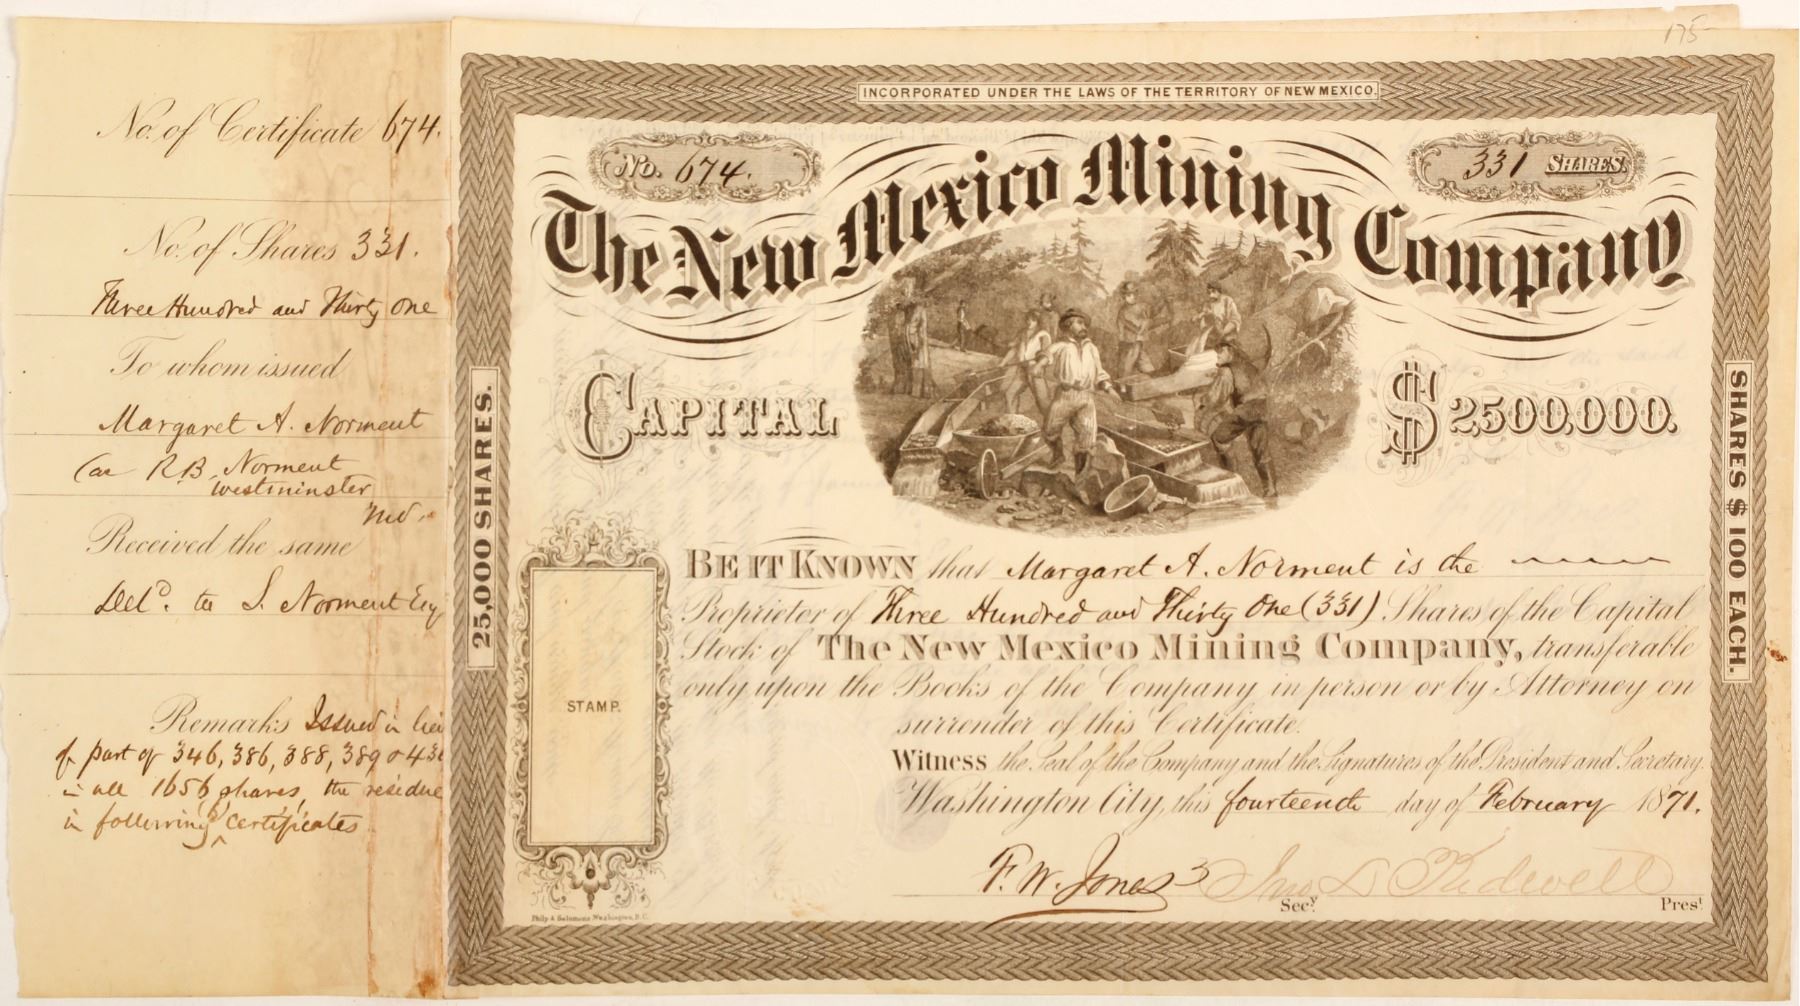 No. of Certificate 674.
No. of Shares 331.
Three Hundred and Thirty One
To whom issued
Margaret A. Norment
Ca R.B. Norment
Westminster
Md.
Received the same
Deld. to S. Norment Esq
Remarks Issued in lieu
of part of 346, 386, 388, 389 & 43
in all 1656 shares, the residue
in following certificates
175-
INCORPORATED UNDER THE LAWS OF THE TERRITORY OF NEW MEXICO.
No. 674.
331 SHARES.
The New Mexico Mining Company
CAPITAL $2,500,000.
25,000 SHARES.
SHARES $100 EACH.
STAMP.
BE IT KNOWN that Margaret A. Norment is the
Proprietor of Three Hundred and Thirty One (331) Shares of the Capital
Stock of The New Mexico Mining Company, transferable
only upon the Books of the Company in person or by Attorney on
surrender of this Certificate.
Witness the Seal of the Company and the Signatures of the President and Secretary.
Washington City, this fourteenth day of February 1871.
F. W. Jones Jno L Kidwell
Secy. Prest.
Philp & Solomons Washington, D.C.